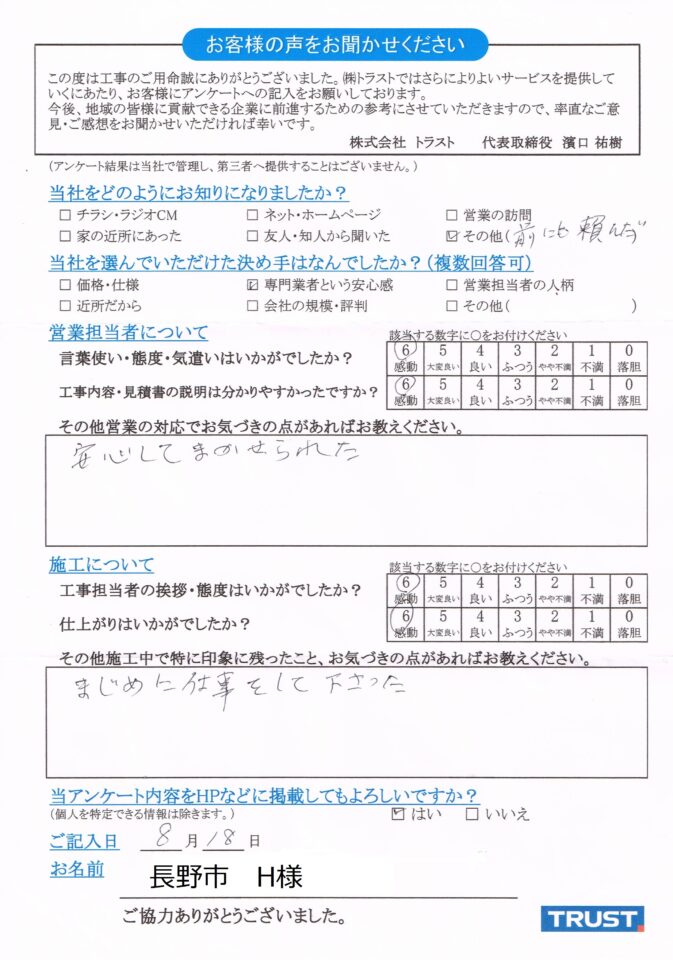 お客様の声をお聞かせください
この度は工事のご用命誠にありがとうございました。㈱トラストではさらによりよいサービスを提供して
いくにあたり、お客様にアンケートへの記入をお願いしております。
今後、地域の皆様に貢献できる企業に前進するための参考にさせていただきますので、率直なご意
見・ご感想をお聞かせいただければ幸いです。
株式会社 トラスト 代表取締役 濱口 祐樹
(アンケート結果は当社で管理し、第三者へ提供することはございません。)
当社をどのようにお知りになりましたか?
□ チラシ・ラジオCM □ ネット・ホームページ □ 営業の訪問
□ 家の近所にあった □ 友人・知人から聞いた ☑ その他(前にも頼んだ
当社を選んでいただけた決め手はなんでしたか?(複数回答可)
□ 価格・仕様 ☑ 専門業者という安心感 □ 営業担当者の人柄
□ 近所だから □ 会社の規模・評判 □ その他( )
営業担当者について 該当する数字に○をお付けください
言葉使い・態度・気遣いはいかがでしたか? 6 5 4 3 2 1 0
感動 大変良い 良い ふつう やや不満 不満 落胆
工事内容・見積書の説明は分かりやすかったですか? 6 5 4 3 2 1 0
感動 大変良い 良い ふつう やや不満 不満 落胆
その他営業の対応でお気づきの点があればお教えください。
安心してまかせられた
施工について 該当する数字に○をお付けください
工事担当者の挨拶・態度はいかがでしたか? 6 5 4 3 2 1 0
感動 大変良い 良い ふつう やや不満 不満 落胆
仕上がりはいかがでしたか? 6 5 4 3 2 1 0
感動 大変良い 良い ふつう やや不満 不満 落胆
その他施工中で特に印象に残ったこと、お気づきの点があればお教えください。
まじめに仕事をして下さった
当アンケート内容をHPなどに掲載してもよろしいですか?
(個人を特定できる情報は除きます。) ☑ はい □ いいえ
ご記入日 8 月 18 日
お名前 長野市 H様
ご協力ありがとうございました。
TRUST.